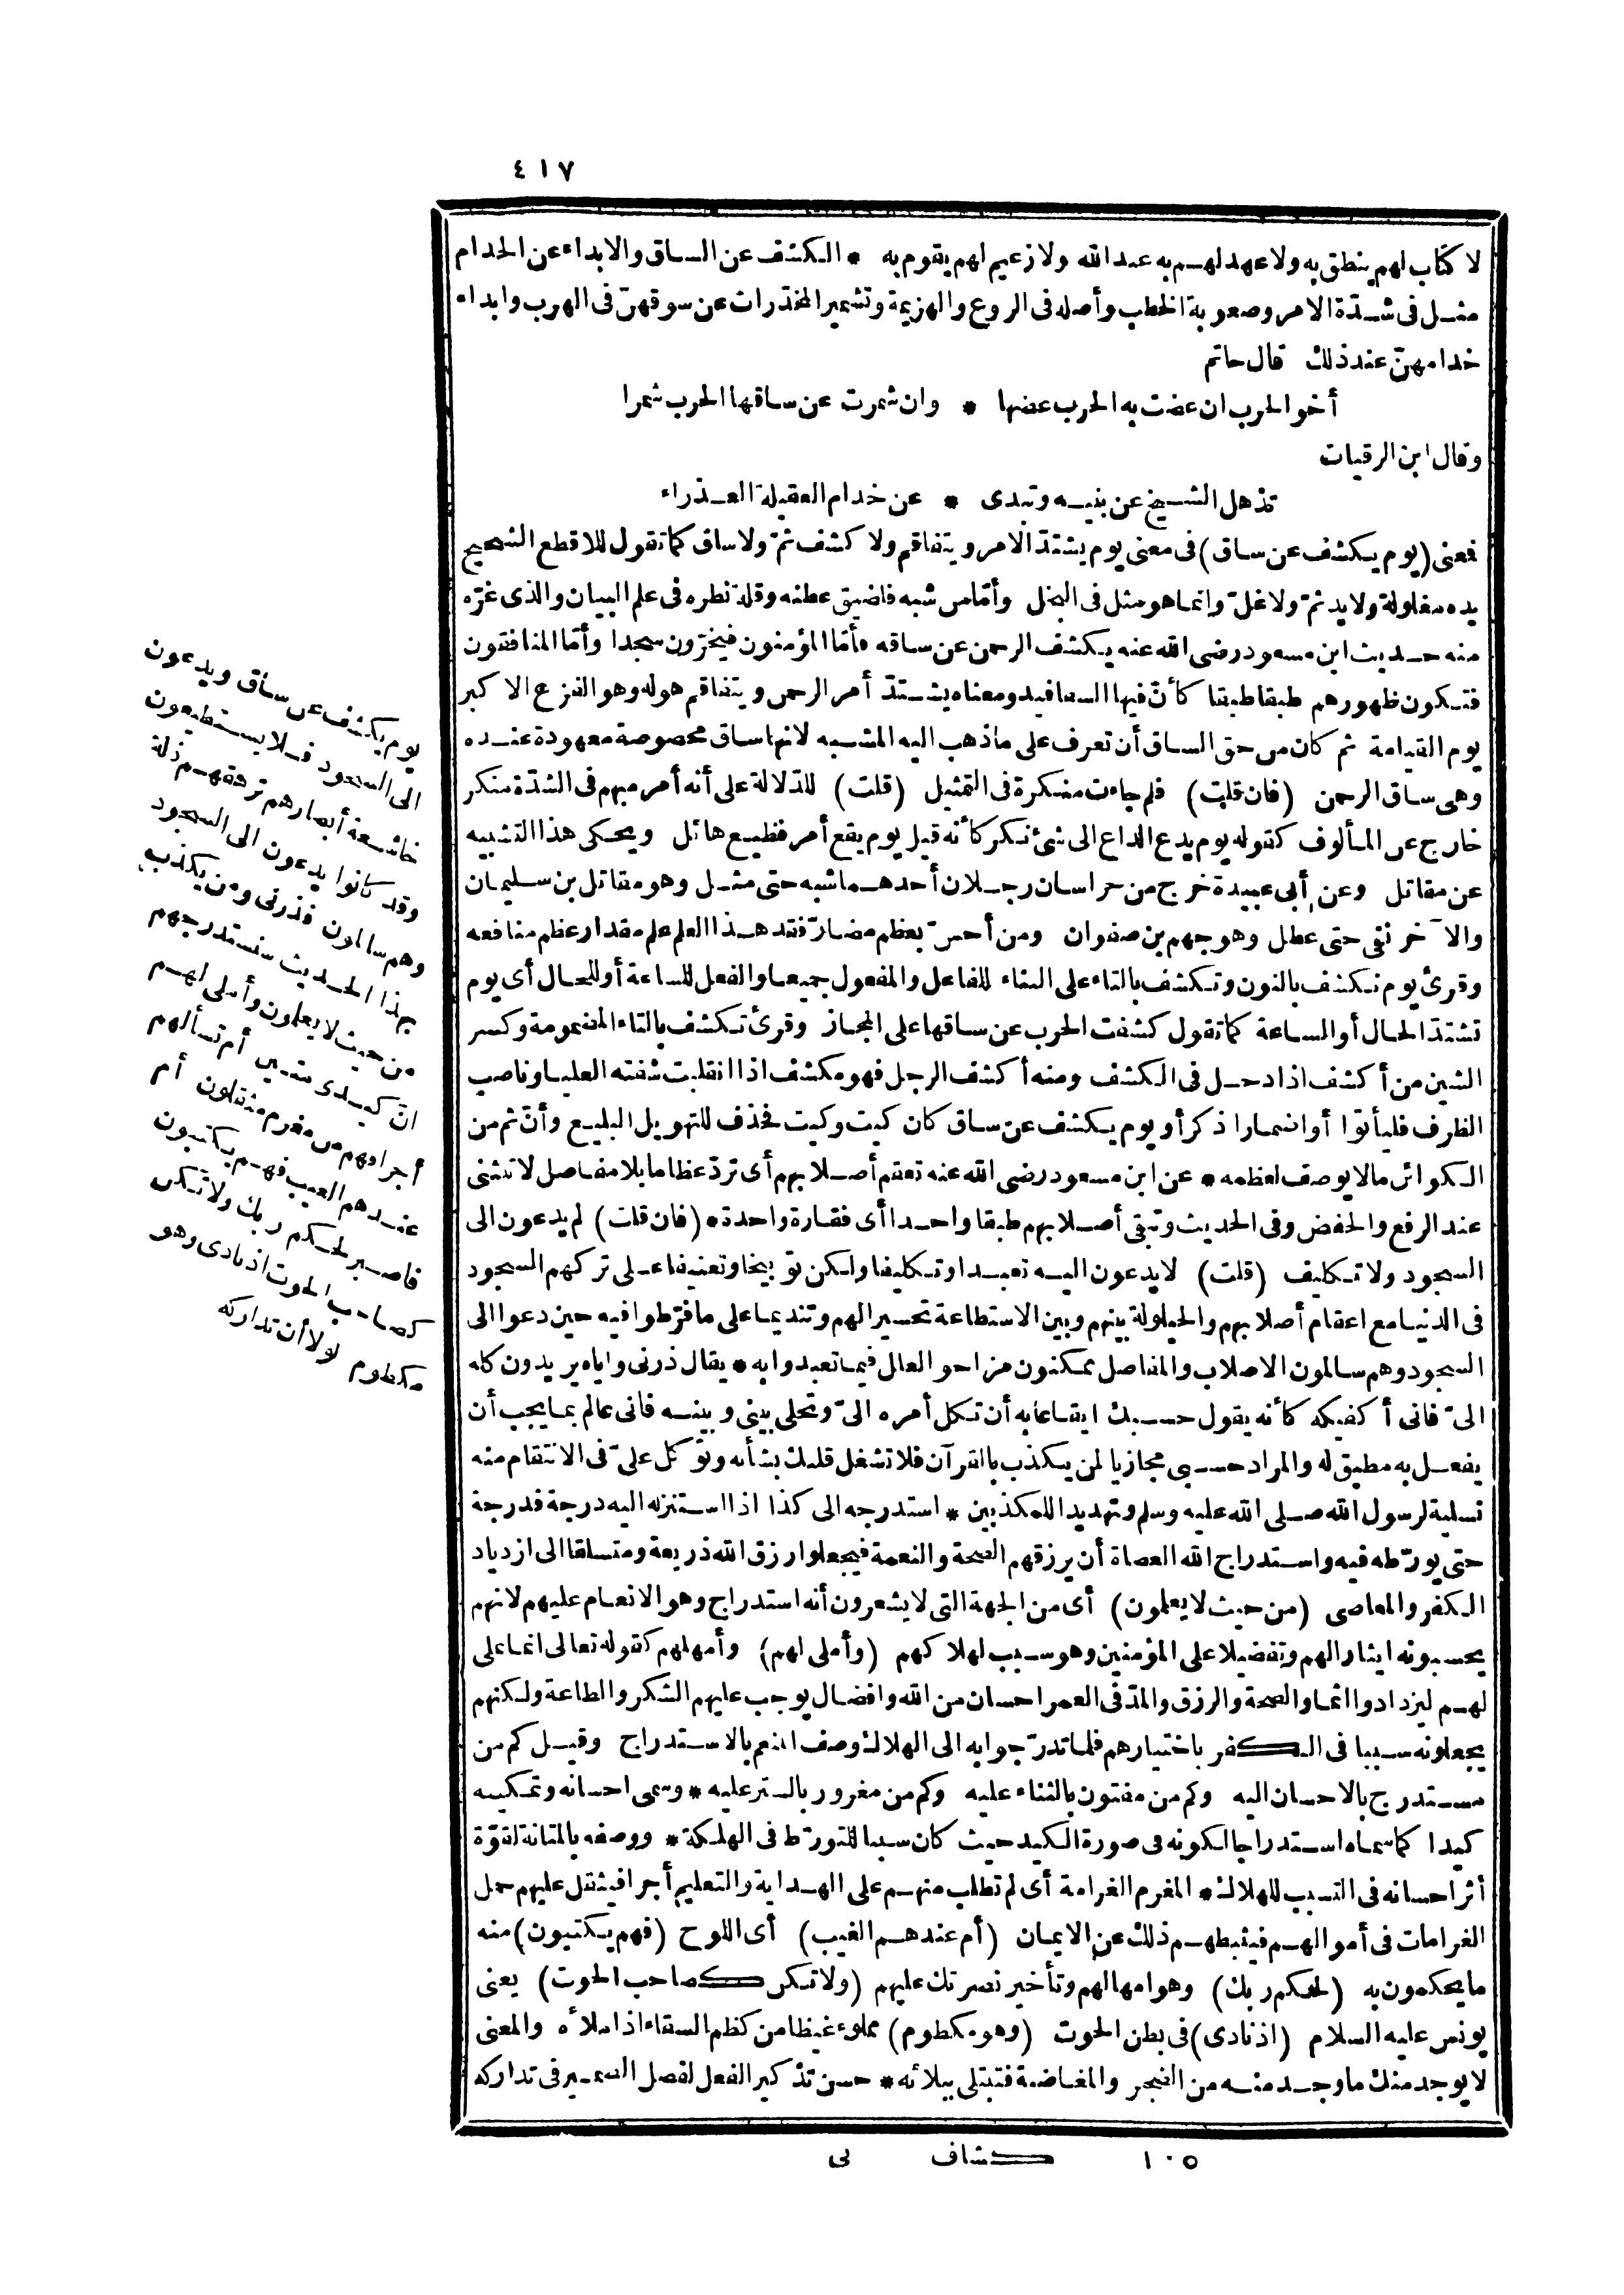 ٤١٧
لا كتاب لهم ينطق به ولا عهد لهم به عند الله ولا زعيم لهم يقوم به * الكشف عن الساق والابداء عن الخدام
مثل فى شدّة الامر وصعوبة الخطب وأصله فى الروع والهزيمة وتشمير المخدّرات عن سوقهنّ فى الهرب وابداء
خدامهنّ عند ذلك قال حاتم
أخو الحرب ان عضت به الحرب عضها * وان شمرت عن ساقها الحرب شمرا
وقال ابن الرقيات
تذهل الشيخ عن بنيه وتبدى * عن خدام العقيلة العذراء
فمعنى (يوم يكشف عن ساق) فى معنى يوم يشتدّ الامر ويتفاقم ولا كشف ثمّ ولا ساق كما تقول للاقطع الشحيح
يده مغلولة ولا يد ثمّ ولا غلّ وانما هو مثل فى البخل وأمّا من شبه فلضيق عطنه وقلة نظره فى علم البيان والذى غرّه
منه حديث ابن مسعود رضى الله عنه يكشف الرحمن عن ساقه فأمّا المؤمنون فيخرّون سجدا وأمّا المنافقون
فتكون ظهورهم طبقا طبقا كأنّ فيها السفافيد ومعناه يشتدّ أمر الرحمن ويتفاقم هوله وهو الفزع الاكبر
يوم القيامة ثم كان من حق الساق أن تعرف على ما ذهب اليه المشبه لانها ساق مخصوصة معهودة عنده
وهى ساق الرحمن (فان قلت) فلم جاءت منكرة فى التمثيل (قلت) للدّلالة على أنه أمر مبهم فى الشدّة منكر
خارج عن المألوف كقوله يوم يدع الداع الى شئ نكر كأنه قيل يوم يقع أمر فظيع هائل ويحكى هذا التشبيه
عن مقاتل وعن أبى عبيدة خرج من خراسان رجلان أحدهما شبه حتى مثل وهو مقاتل بن سليمان
والآخر نفى حتى عطل وهو جهم بن صفوان ومن أحسّ بعظم مضارّ فقد هذا العلم علم مقدار عظم منافعه
وقرئ يوم نكشف بالنون وتكشف بالتاء على البناء للفاعل والمفعول جميعا والفعل للساعة أو للحال أى يوم
تشتدّ الحال أو الساعة كما تقول كشفت الحرب عن ساقها على المجاز وقرئ تكشف بالتاء المضمومة وكسر
الشين من أكشف اذا دخل فى الكشف ومنه أكشف الرجل فهو مكشف اذا انقلبت شفته العليا وناصب
الظرف فليأتوا أو اضمار اذكر أو يوم يكشف عن ساق كان كيت وكيت فحذف للتهويل البليغ وأنّ ثم من
الكوائن ما لا يوصف لعظمه * عن ابن مسعود رضى الله عنه تعقم أصلابهم أى تردّ عظاما بلا مفاصل لا تنثنى
عند الرفع والخفض وفى الحديث وتبقى أصلابهم طبقا واحدا أى فقارة واحدة * (فان قلت) لم يدعون الى
السجود ولا تكليف (قلت) لا يدعون اليه تعبدا وتكليفا ولكن توبيخا وتعنيفا على تركهم السجود
فى الدنيا مع اعقام أصلابهم والحيلولة بينهم وبين الاستطاعة تحسيرا لهم وتنديما على ما فرّطوا فيه حين دعوا الى
السجود وهم سالمون الاصلاب والمفاصل ممكنون مزاحو العلل فيما تعبدوا به * يقال ذرنى واياه يريدون كله
الىّ فانى أكفيكه كأنه يقول حسبك ايقاعا به أن تكل أمره الىّ وتخلى بينى وبينه فانى عالم بما يجب أن
يفعل به مطيق له والمراد حسبى مجازيا لمن يكذب بالقرآن فلا تشغل قلبك بشأنه وتوكل علىّ فى الانتقام منه
تسلية لرسول الله صلى الله عليه وسلم وتهديدا للمكذبين * استدرجه الى كذا اذا استنزله اليه درجة فدرجة
حتى يورّطه فيه واستدراج الله العصاة أن يرزقهم الصحة والنعمة فيجعلوا رزق الله ذريعة ومتسلقا الى ازدياد
الكفر والمعاصى (من حيث لا يعلمون) أى من الجهة التى لا يشعرون أنه استدراج وهو الانعام عليهم لانهم
يحسبونه ايثارا لهم وتفضيلا على المؤمنين وهو سبب لهلاكهم (وأملى لهم) وأمهلهم كقوله تعالى انما نملى
لهم ليزدادوا اثما والصحة والرزق والمدّ فى العمر احسان من الله وافضال يوجب عليهم الشكر والطاعة ولكنهم
يجعلونه سببا فى الكفر باختيارهم فلما تدرّجوا به الى الهلاك وصف المنعم بالاستدراج وقيل كم من
مستدرج بالاحسان اليه وكم من مفتون بالثناء عليه وكم من مغرور بالستر عليه * وسمى احسانه وتمكينه
كيدا كما سماه استدراجا لكونه فى صورة الكيد حيث كان سببا للتورّط فى الهلكة * ووصفه بالمتانة لقوّة
أثر احسانه فى التسبب للهلاك * المغرم الغرامة أى لم تطلب منهم على الهداية والتعليم أجرا فيثقل عليهم حمل
الغرامات فى أموالهم فيثبطهم ذلك عن الايمان (أم عندهم الغيب) أى اللوح (فهم يكتبون) منه
ما يحكمون به (لحكم ربك) وهو امهالهم وتأخير نصرتك عليهم (ولا تكن كصاحب الحوت) يعنى
يونس عليه السلام (اذ نادى) فى بطن الحوت (وهو مكظوم) مملوء غيظا من كظم السقاء اذا ملأه والمعنى
لا يوجد منك ما وجد منه من الضجر والمغاضبة فتبتلى ببلائه * حسن تذكير الفعل لفصل الضمير فى تداركه
يوم يكشف عن ساق ويدعون
الى السجود فلا يستطيعون
خاشعة أبصارهم ترهقهم ذلة
وقد كانوا يدعون الى السجود
وهم سالمون فذرنى ومن يكذب
بهذا الحديث سنستدرجهم
من حيث لا يعلمون وأملى لهم
انّ كيدى متين أم تسألهم
أجرا فهم من مغرم مثقلون أم
عندهم الغيب فهم يكتبون
فاصبر لحكم ربك ولا تكن
كصاحب الحوت اذ نادى وهو
مكظوم لولا أن تداركه
١٠٥ كشاف نى